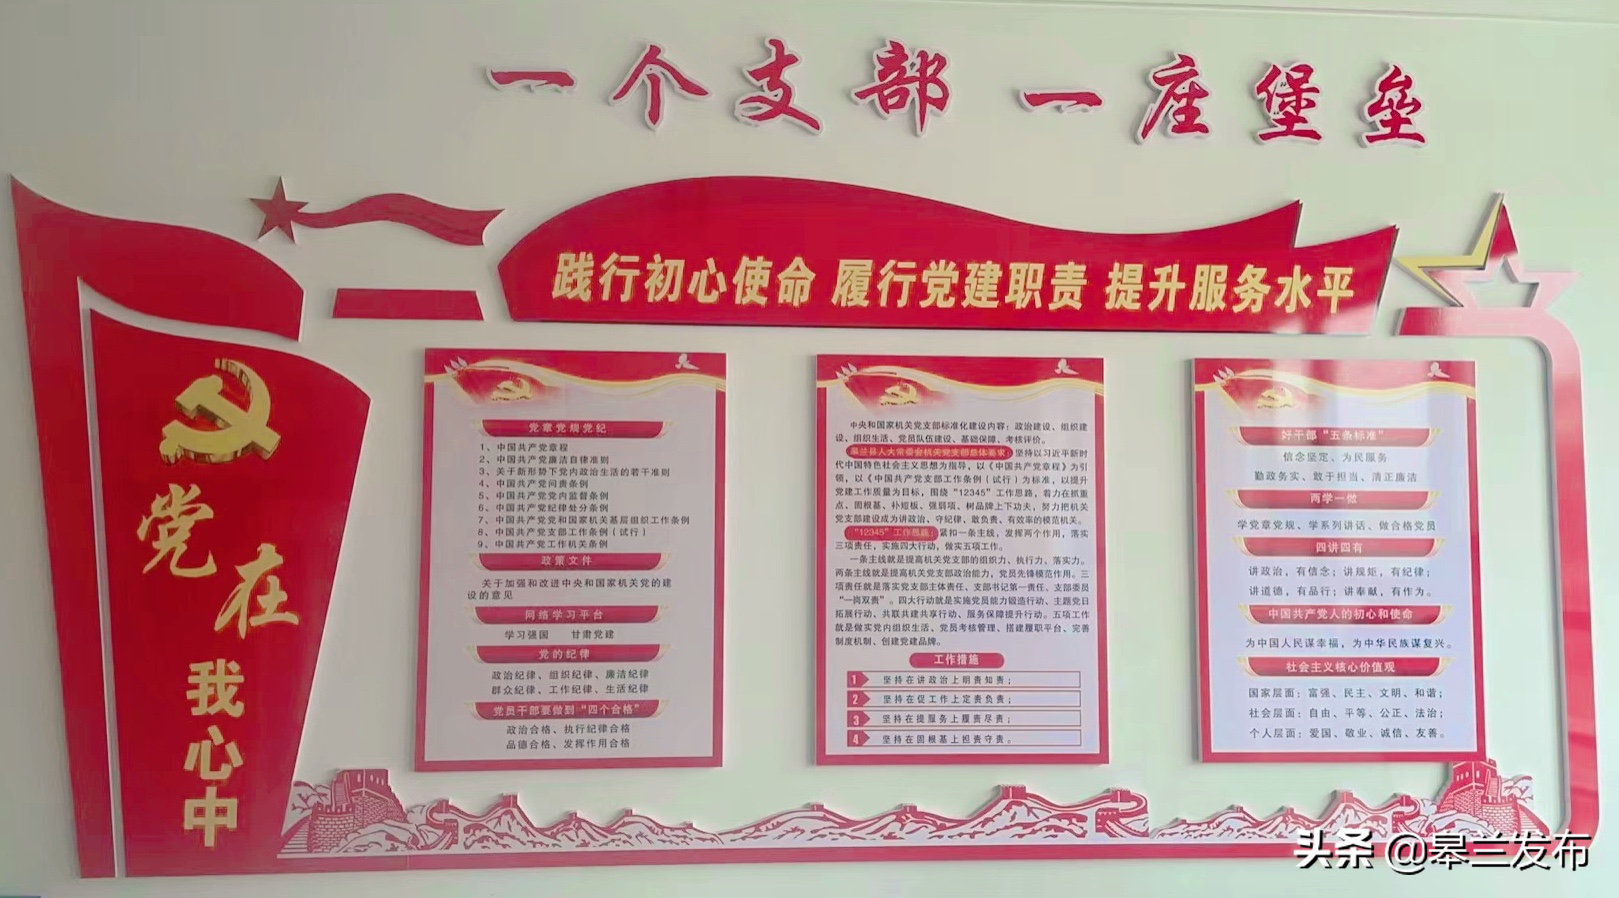 一个支部 一座堡垒
践行初心使命 履行党建职责 提升服务水平
党
在
我
心
中
党章党规党纪
1、中国共产党章程
2、中国共产党廉洁自律准则
3、关于新形势下党内政治生活的若干准则
4、中国共产党问责条例
5、中国共产党党内监督条例
6、中国共产党纪律处分条例
7、中国共产党党和国家机关基层组织工作条例
8、中国共产党支部工作条例（试行）
9、中国共产党工作机关条例
政策文件
关于加强和改进中央和国家机关党的建
设的意见
网络学习平台
学习强国 甘肃党建
党的纪律
政治纪律、组织纪律、廉洁纪律
群众纪律、工作纪律、生活纪律
党员干部要做到“四个合格”
政治合格、执行纪律合格
品德合格、发挥作用合格
中央和国家机关党支部标准化建设内容：政治建设、组织建
设、组织生活、党员队伍建设、基础保障、考核评价。
皋兰县人大常委会机关党支部总体要求：坚持以习近平新时
代中国特色社会主义思想为指导，以《中国共产党章程》为引
领，以《中国共产党支部工作条例（试行）》为标准，以提升
党建工作质量为目标，围绕“12345”工作思路，着力在抓重
点、固根基、补短板、强弱项、树品牌上下功夫，努力把机关
党支部建设成为讲政治、守纪律、敢负责、有效率的模范机关。
“12345”工作思路：紧扣一条主线，发挥两个作用，落实
三项责任，实施四大行动，做实五项工作。
一条主线就是提高机关党支部的组织力、执行力、落实力。
两条主线就是提高机关党支部政治能力，党员先锋模范作用。三
项责任就是落实党支部主体责任、支部书记第一责任、支部委员
“一岗双责”。四大行动就是实施党员能力锻造行动、主题党日
拓展行动、共联共建共享行动、服务保障提升行动。五项工作
就是做实党内组织生活、党员考核管理、搭建履职平台、完善
制度机制、创建党建品牌。
工作措施
1 坚持在讲政治上明责知责；
2 坚持在促工作上定责负责；
3 坚持在提服务上履责尽责；
4 坚持在固根基上担责守责。
好干部“五条标准”
信念坚定、为民服务
勤政务实、敢于担当、清正廉洁
两学一做
学党章党规、学系列讲话、做合格党员
四讲四有
讲政治，有信念；讲规矩，有纪律；
讲道德，有品行；讲奉献，有作为。
中国共产党人的初心和使命
为中国人民谋幸福，为中华民族谋复兴。
社会主义核心价值观
国家层面：富强、民主、文明、和谐；
社会层面：自由、平等、公正、法治；
个人层面：爱国、敬业、诚信、友善。
头条 @皋兰发布